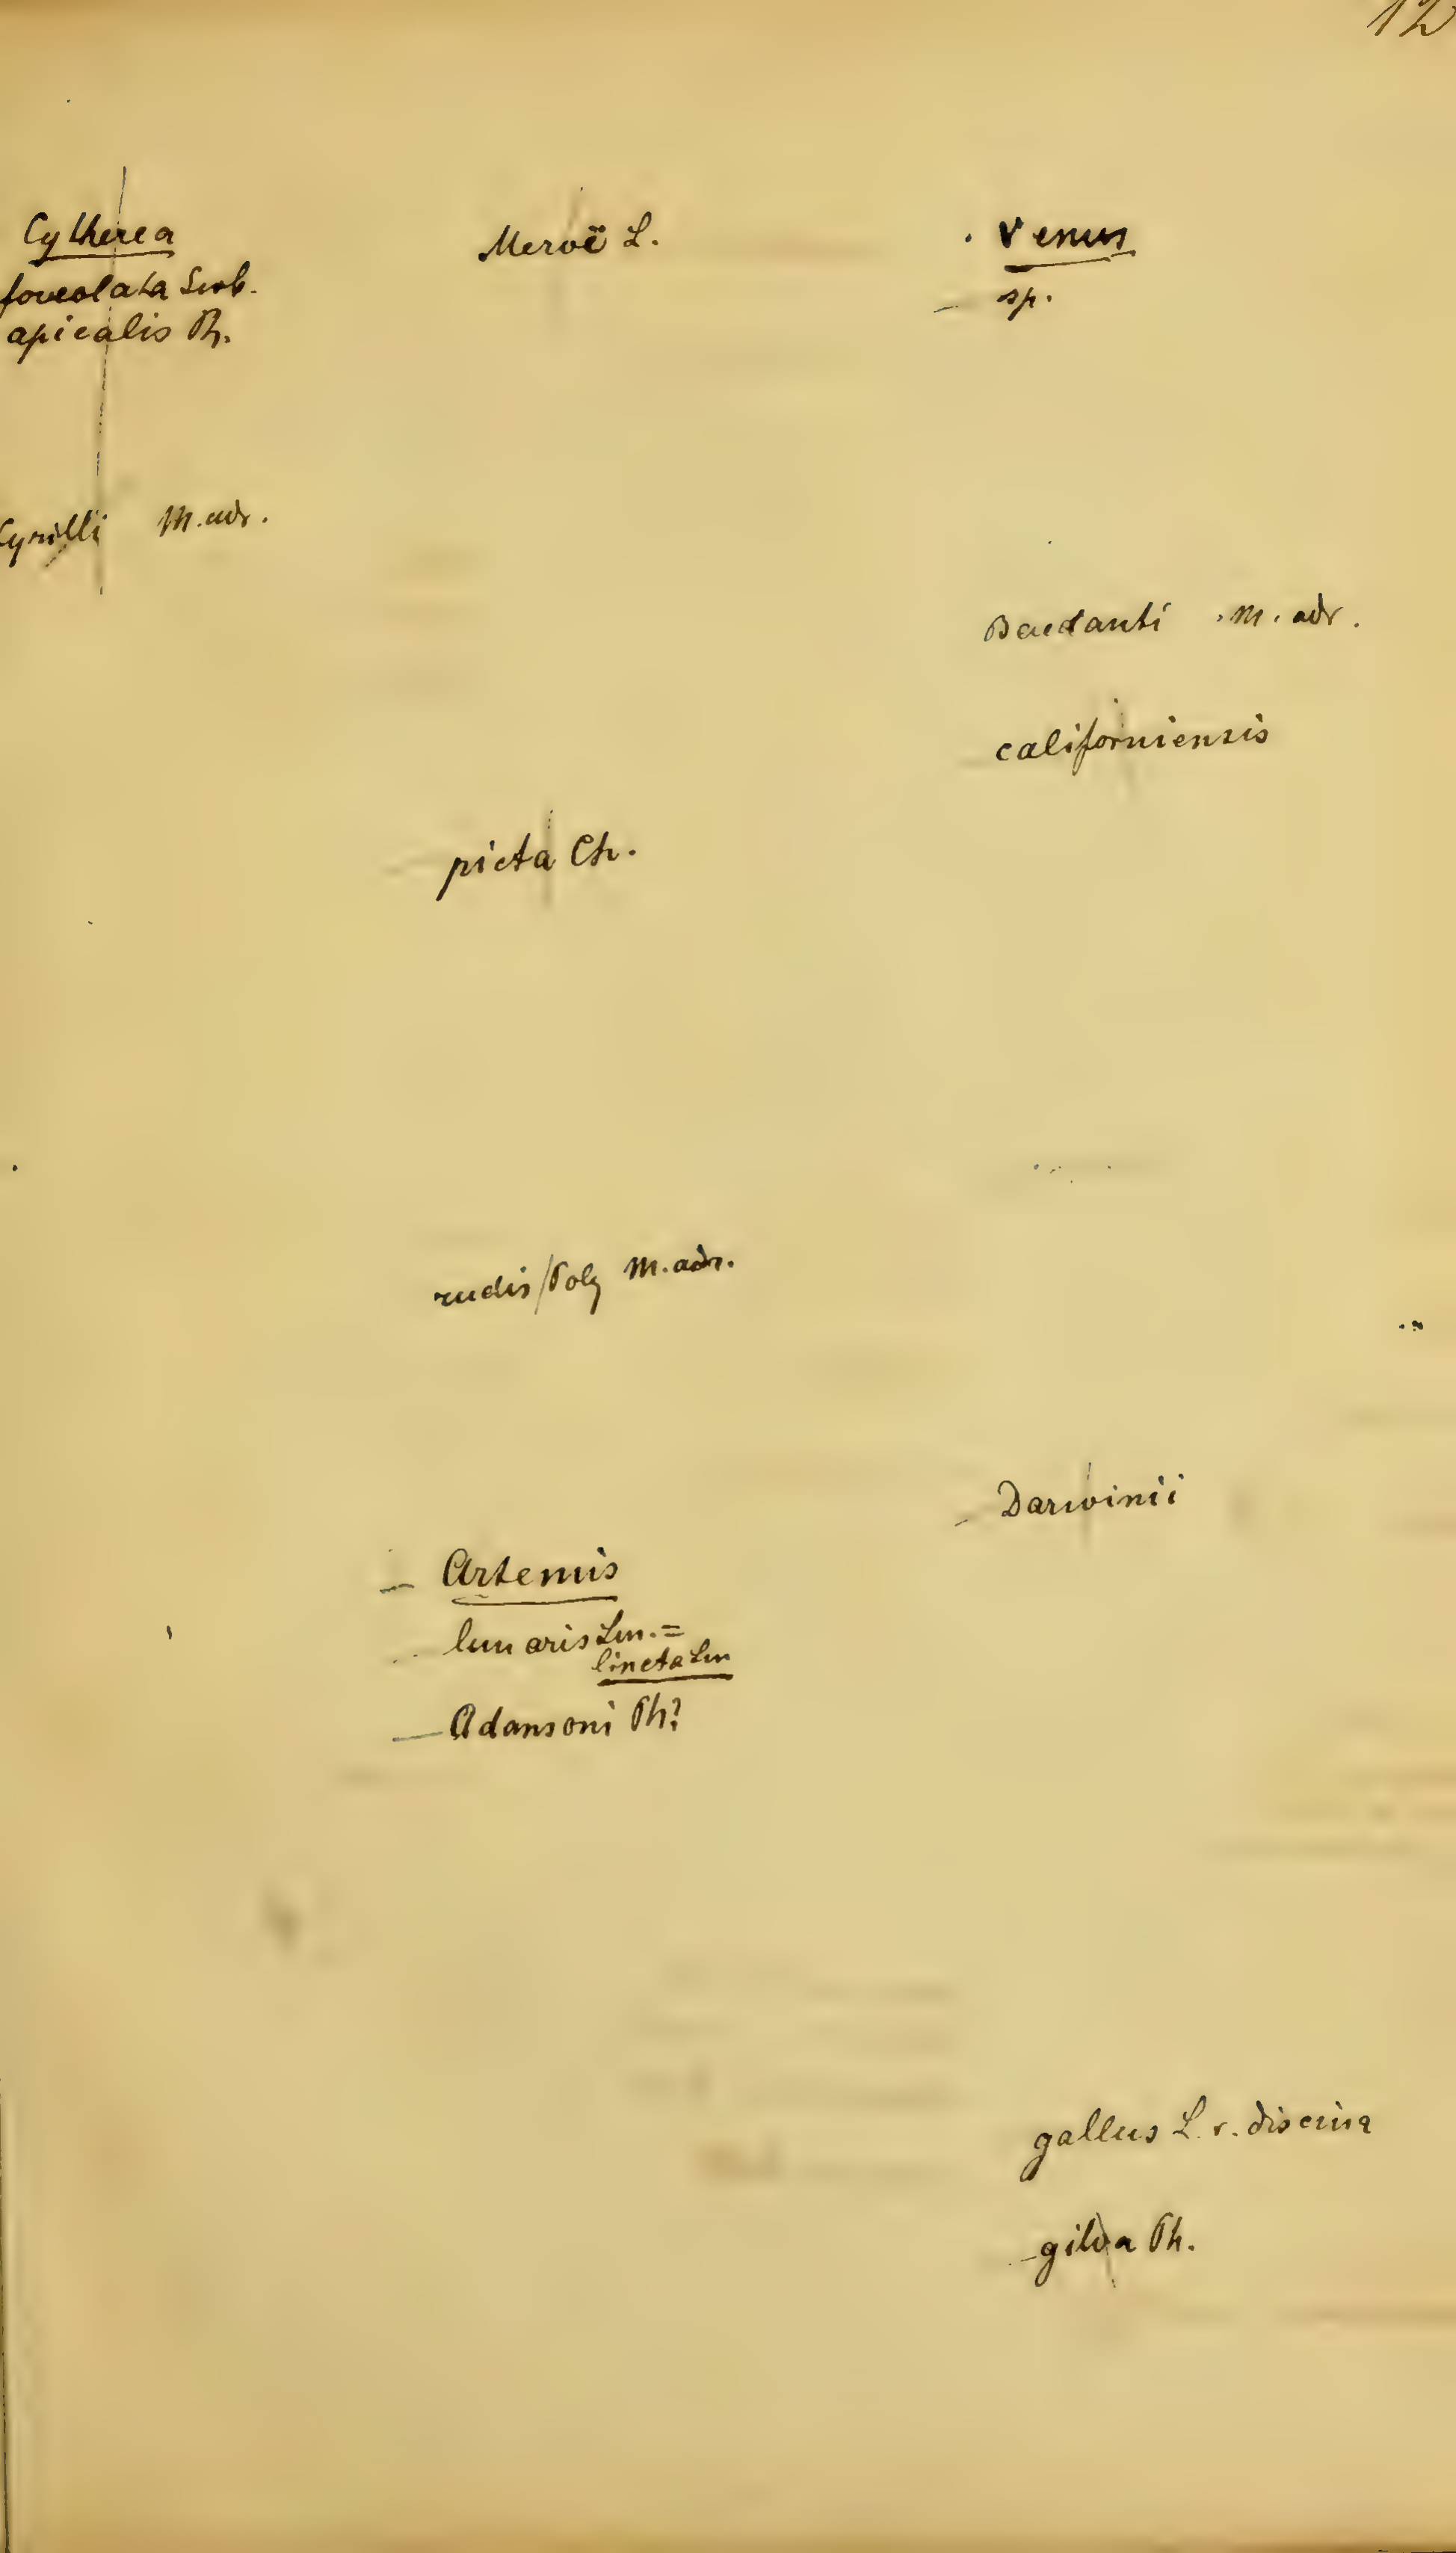 12
Cytherea
foveolata Sowb.
apicalis Ph.
Cyrilli M. adr.
Meroë L.
picta Ch.
rudis Poly M. adr.
Artemis
lunaris Lm. =
lincta Lm
Adansoni Ph?
Venus
sp.
Beudanti M. adr.
californiensis
Darwinii
gallus L. v. discina
gilva Ph.